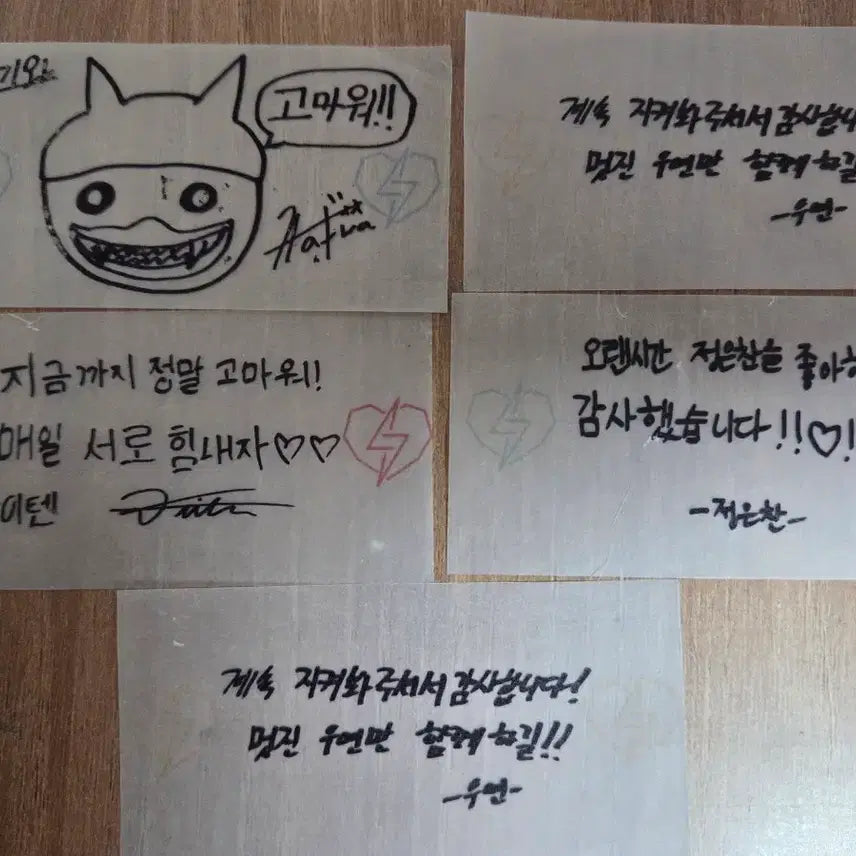 고마워!!
계속 지켜봐주셔서 감사합니다
멋진 우연만 함께 하길
-우연-
지금까지 정말 고마워!
매일 서로 힘내자♡♡
이텐
오랜시간 정은찬을 좋아해
감사했습니다!!♡!
-정은찬-
계속 지켜봐주셔서 감사합니다!
멋진 우연만 함께 하길!!
-우연-